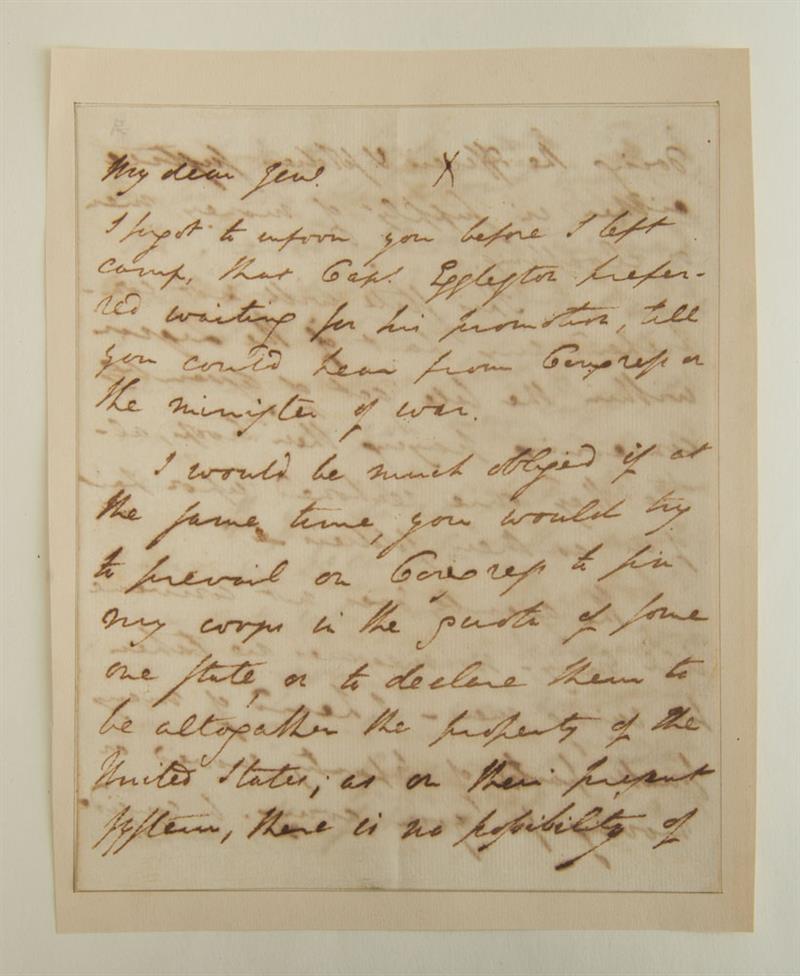 My dear Genl. X
I forgot to inform you before I left
camp, that Capt. Eggleston prefer-
red waiting for his promotion, till
you could hear from Congress or
the minister of war.
I would be much obliged if at
the same time, you would try
to prevail on Congress to fix
my corps in the quota of some
one state, or to declare them to
be altogather the property of the
United States; as on their present
system, there is no possibility of